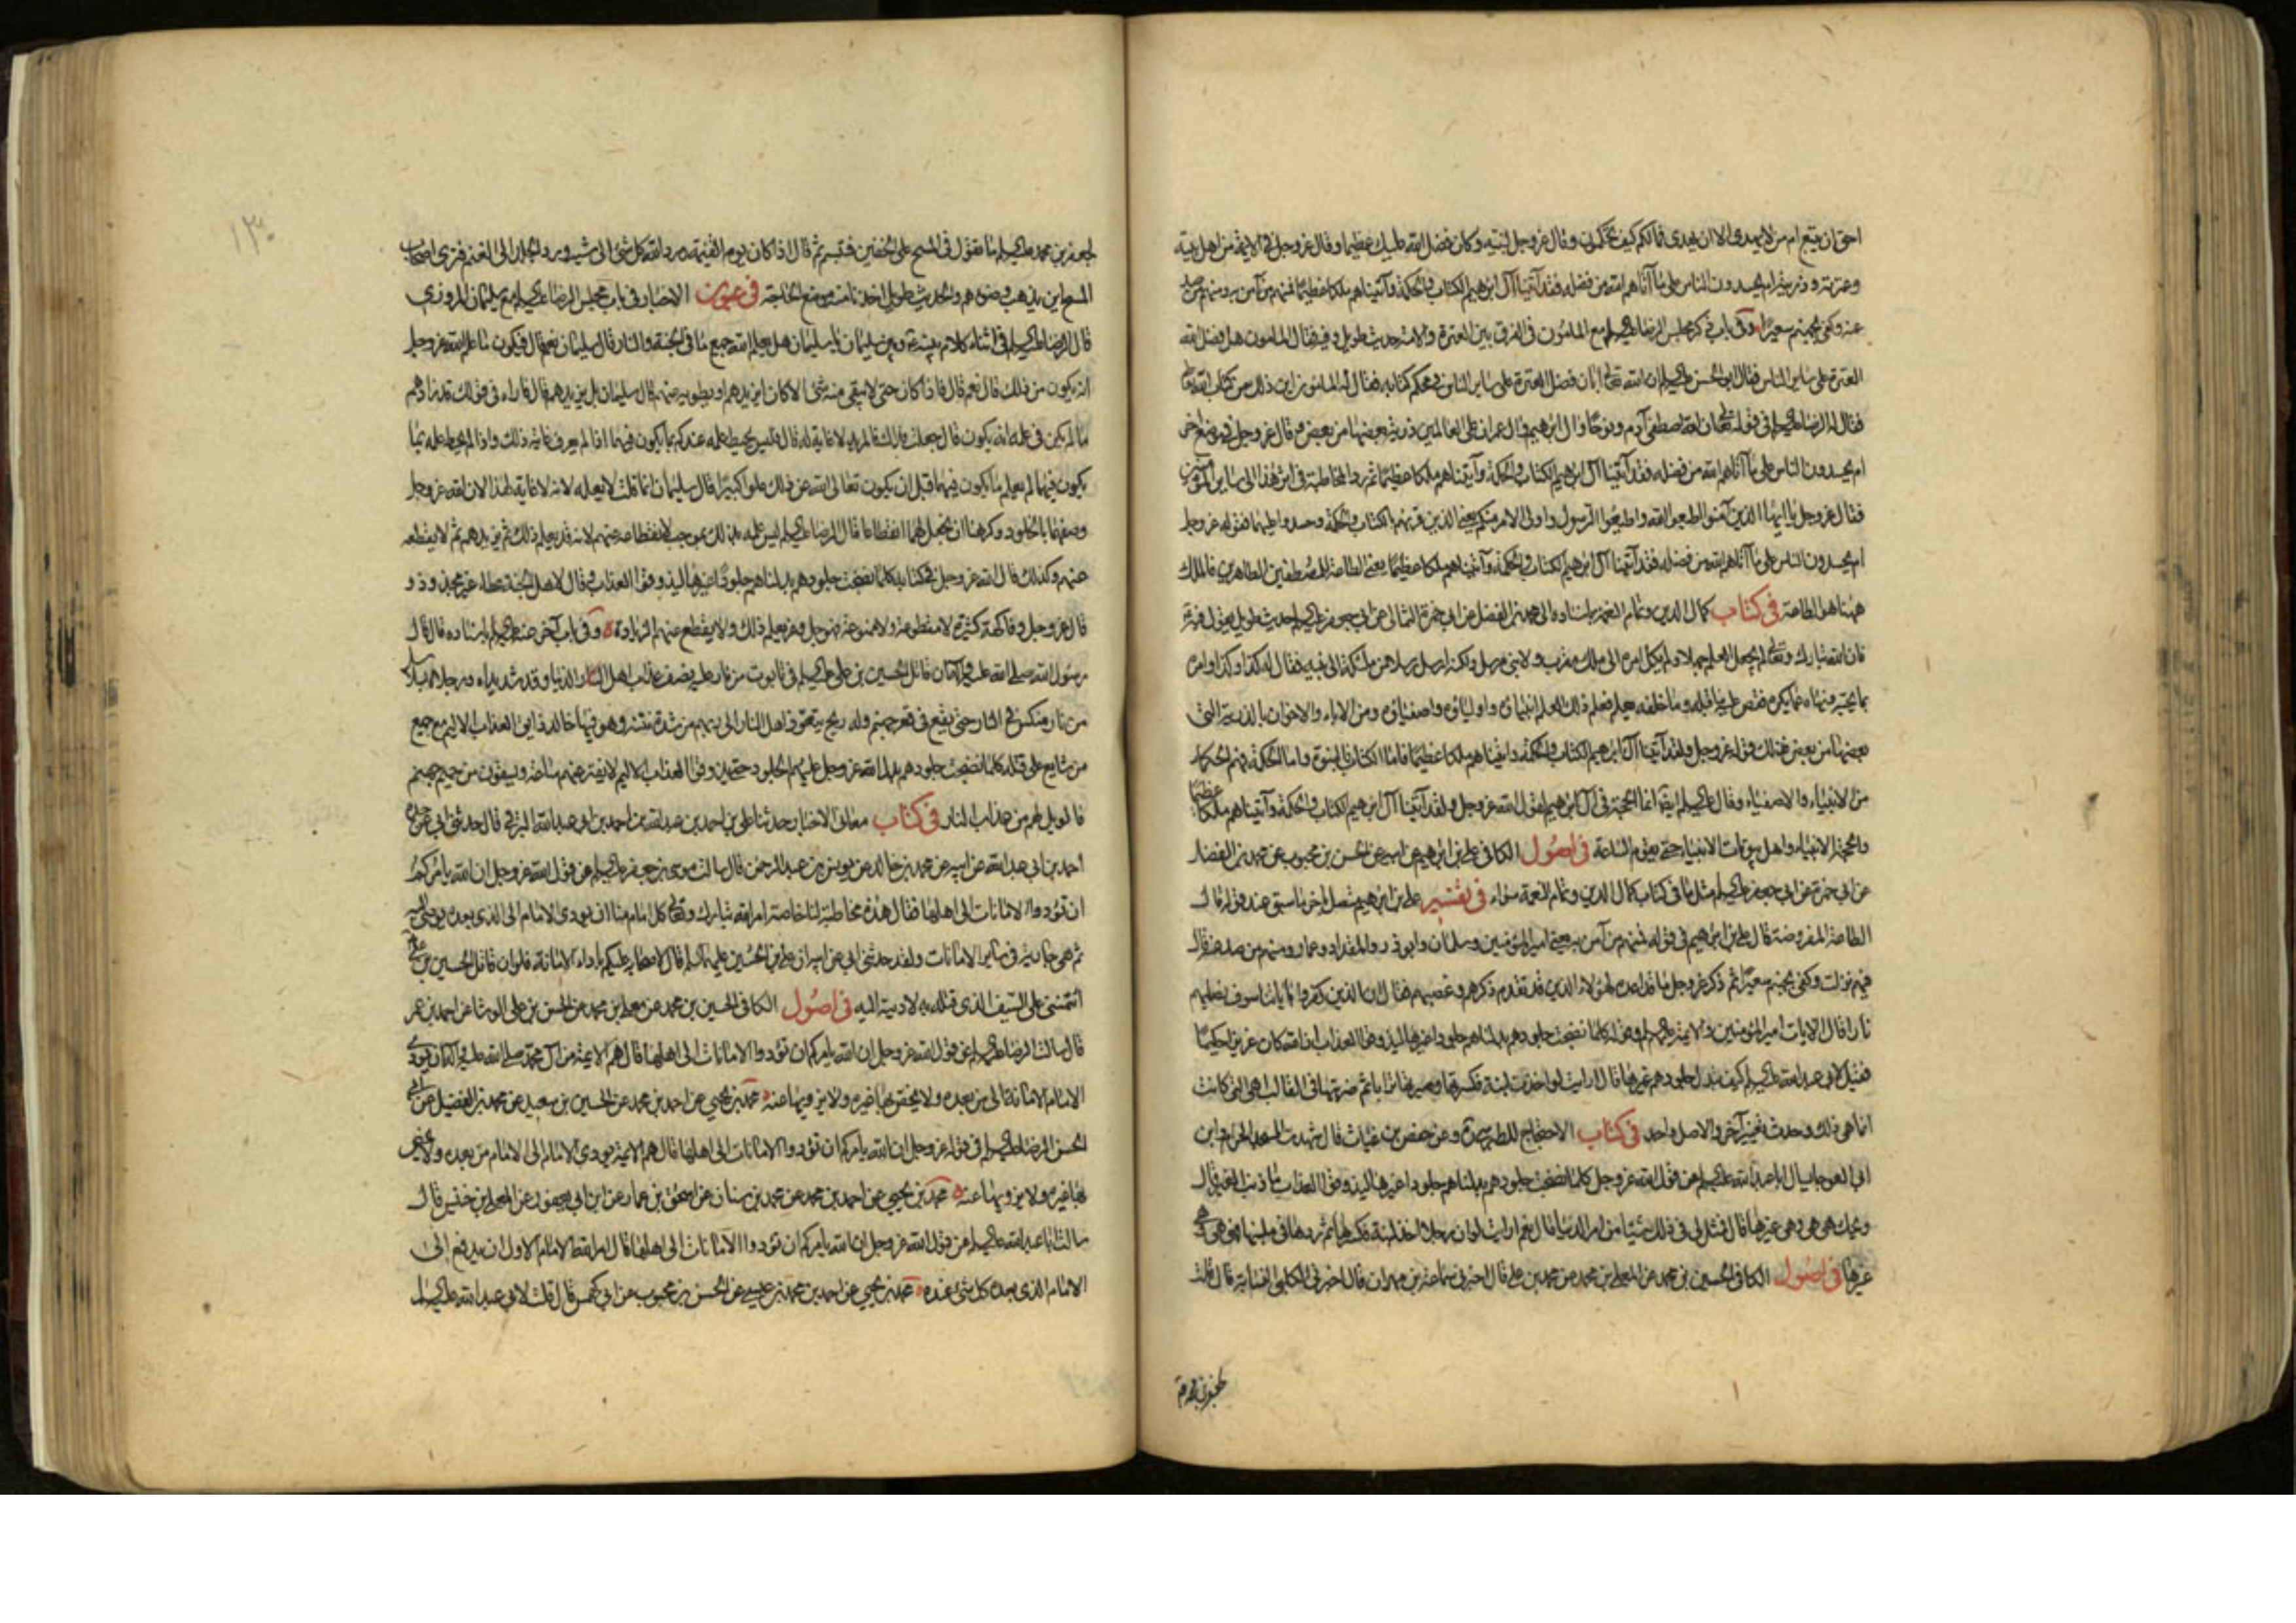 احق ان يتبع ام من لا يهدى الا ان يهدى فما لكم كيف تحكمون وقال عز وجل لنبيه وكان فضل الله عليك عظيما وقال عز وجل في الائمة من اهل بيته
وعترته وذريته ام يحسدون الناس على ما آتاهم الله من فضله فقد آتينا آل ابرهيم الكتاب والحكمة وآتيناهم ملكا عظيما فمنهم من آمن به ومنهم من صد
عنه وكفى بجهنم سعيرا وفى باب ذكر مجلس الرضا عليه السلم مع المامون في الفرق بين العترة والامة حديث طويل وفيه فقال المامون هل فضل الله
العترة على ساير الناس فقال ابو الحسن عليه السلم ان الله تعالى ابان فضل العترة على ساير الناس في محكم كتابه فقال له المامون اين ذلك من كتاب الله تعالى
فقال له الرضا عليه السلم في قوله تعالى ان الله اصطفى آدم ونوحا وآل ابرهيم وآل عمران على العالمين ذرية بعضها من بعض وقال عز وجل في موضع آخر
ام يحسدون الناس على ما آتاهم الله من فضله فقد آتينا آل ابرهيم الكتاب والحكمة وآتيناهم ملكا عظيما ثم رد المخاطبة في اثر هذا الى ساير المؤمنين
فقال عز وجل يا ايها الذين آمنوا اطيعوا الله واطيعوا الرسول واولى الامر منكم يعنى الذين قرنهم بالكتاب والحكمة وحسدوا عليهما فقوله عز وجل
ام يحسدون الناس على ما آتاهم الله من فضله فقد آتينا آل ابرهيم الكتاب والحكمة وآتيناهم ملكا عظيما يعنى الطاعة للمصطفين الطاهرين فالملك
ههنا هو الطاعة في كتاب كمال الدين وتمام النعمة باسناده الى محمد بن الفضل عن ابي حمزة الثمالى عن ابي جعفر عليه السلم حديث طويل يقول فيه
فان الله تبارك وتعالى لم يجعل العلم جهلا ولم يكل امره الى ملك مقرب ولا نبى مرسل ولكنه ارسل رسلا من ملئكته الى نبيه فقال له كذا وكذا وامره
بما يحبه ونهاه عما يكره فقص عليه ما قبله وما خلفه بعلم فعلم ذلك العلم انبياءه واولياءه واصفياءه ومن الاباء والاخوان بالذرية التى
بعضها من بعض فذلك قوله عز وجل ولقد آتينا آل ابرهيم الكتاب والحكمة وآتيناهم ملكا عظيما فاما الكتاب فالنبوة واما الحكمة فهم الحكماء
من الانبياء والاصفياء وقال عليه السلم ايضا انما الحجة في آل ابرهيم لقول الله عز وجل ولقد آتينا آل ابرهيم الكتاب والحكمة وآتيناهم ملكا عظيما
والحجة الانبياء واهل بيوتات الانبياء حتى يقوم الساعة في اصول الكافى على بن ابرهيم عن ابيه عن الحسن بن محبوب عن محمد بن الفضل
عن ابي حمزة عن ابي جعفر عليه السلم مثل ما في كتاب كمال الدين وتمام النعمة سواء في تفسير على بن ابرهيم متصل باخر ما سبق عند قوله قال
الطاعة المفروضة قال على بن ابرهيم في قوله فمنهم من آمن به يعنى امير المؤمنين وسلمان وابو ذر والمقداد وعمار ومنهم من صد عنه قال
فيهم نزلت وكفى بجهنم سعيرا ثم ذكر عز وجل ما قد اعده لهؤلاء الذين قد تقدم ذكرهم وغصبهم فقال ان الذين كفروا باياتنا سوف نصليهم
نارا قال الايات امير المؤمنين والائمة عليهم السلم وقوله كلما نضجت جلودهم بدلناهم جلودا غيرها ليذوقوا العذاب ان الله كان عزيزا حكيما
فقيل لابى عبد الله عليه السلم كيف تبدل جلودهم غيرها قال ارايت لو اخذت لبنة فكسرتها وصيرتها ترابا ثم ضربتها في القالب اهى التى كانت
انما هى ذلك وحدث تغيير آخر والاصل واحد في كتاب الاحتجاج للطبرسى وعن حفص بن غياث قال شهدت المسجد الحرام وابن
ابى العوجا يسال ابا عبد الله عليه السلم عن قول الله عز وجل كلما نضجت جلودهم بدلناهم جلودا غيرها ليذوقوا العذاب ما ذنب الغير قال
ويحك هى هى وهى غيرها قال فمثل لى في ذلك شيئا من امر الدنيا قال نعم ارايت لو ان رجلا اخذ لبنة فكسرها ثم ردها في ملبنها فهى هى وهى
غيرها في اصول الكافى الحسين بن محمد عن المعلى بن محمد عن محمد بن على قال اخبرنى سماعة بن مهران قال اخبرنى الكلبى النسابة قال قلت
لجعفر بن محمد
١٣٠
لجعفر بن محمد عليه السلم ما تقول في المسح على الخفين فتبسم ثم قال اذا كان يوم القيمة ورد الله كل شئ الى شيئه ورد الجلد الى الغنم فترى اصحاب
المسح اين يذهب وضوءهم والحديث طويل اخذنا منه موضع الحاجة في عيون الاخبار في باب مجلس الرضا عليه السلم مع سليمان المروزى
قال الرضا عليه السلم في اثناء كلام بينه وبين سليمان يا سليمان هل يعلم الله جميع ما في الجنة والنار قال سليمان نعم قال فيكون ما علم الله عز وجل
انه يكون من ذلك قال نعم قال فاذا كان حتى لا يبقى منه شئ الا كان ايزيدهم او يطويه عنهم قال سليمان بل يزيدهم قال فاراه في قولك قد زادهم
ما لم يكن في علمه انه يكون قال جعلت فداك فالمريد لا غاية له قال فليس يحيط علمه عندكم بما يكون فيهما اذا لم يعرف غاية ذلك واذا لم يحط علمه بما
يكون فيهما لم يعلم ما يكون فيهما قبل ان يكون تعالى الله عن ذلك علوا كبيرا قال سليمان انما قلت لا يعلمه لانه لا غاية لهذا لان الله عز وجل
وصفهما بالخلود وكرهنا ان نجعل لهما انقطاعا قال الرضا عليه السلم ليس علمه بذلك بموجب لانقطاعه عنهم لانه قد يعلم ذلك ثم يزيدهم ثم لا يقطعه
عنهم وكذلك قال الله عز وجل في كتابه كلما نضجت جلودهم بدلناهم جلودا غيرها ليذوقوا العذاب وقال لاهل الجنة عطاء غير مجذوذ و
قال عز وجل وفاكهة كثيرة لا مقطوعة ولا ممنوعة فهو جل وعز يعلم ذلك ولا يقطع عنهم الزيادة وفى باب آخر عنه عليه السلم باسناده قال قال
رسول الله صلى الله عليه وآله ان قاتل الحسين بن على عليه السلم في تابوت من نار عليه نصف عذاب اهل الدنيا وقد شد يداه ورجلاه بسلاسل
من نار منكس في النار حتى يقع في قعر جهنم وله ريح يتعوذ اهل النار الى ربهم من شدة نتنه وهو فيها خالد ذايق العذاب الاليم مع جميع
من شايع على قتله كلما نضجت جلودهم بدل الله عز وجل عليهم الجلود حتى يذوقوا العذاب الاليم لا يفتر عنهم ساعة ويسقون من حميم جهنم
فالويل لهم من عذاب النار في كتاب معانى الاخبار حدثنا على بن احمد بن عبد الله بن احمد بن ابى عبد الله البرقى قال حدثنى ابى عن جده
احمد بن ابى عبد الله عن ابيه عن محمد بن خالد عن يونس بن عبد الرحمن قال سالت موسى بن جعفر عليه السلم عن قول الله عز وجل ان الله يامركم
ان تؤدوا الامانات الى اهلها فقال هذه مخاطبة لنا خاصة امر الله تبارك وتعالى كل امام منا ان يودى الامام الى الذى بعده يوصى اليه
ثم هى جارية في ساير الامانات ولقد حدثنى ابى عن ابيه ان على بن الحسين عليهما السلم قال لاصحابه عليكم باداء الامانة فلو ان قاتل الحسين بن على
ائتمننى على السيف الذى قتله به لاديته اليه في اصول الكافى الحسين بن محمد عن معلى بن محمد عن الحسن بن على الوشا عن احمد بن عمر
قال سالت الرضا عليه السلم عن قول الله عز وجل ان الله يامركم ان تؤدوا الامانات الى اهلها قال هم الائمة من آل محمد صلى الله عليه وآله ان يودى
الامام الامانة الى من بعده ولا يخص بها غيره ولا يزويها عنه محمد بن يحيى عن احمد بن محمد عن الحسين بن سعيد عن محمد بن الفضيل عن ابى
الحسن الرضا عليه السلم في قول الله عز وجل ان الله يامركم ان تؤدوا الامانات الى اهلها قال هم الائمة يودى الامام الى الامام من بعده ولا يخص
بها غيره ولا يزويها عنه محمد بن يحيى عن احمد بن محمد عن محمد بن سنان عن اسحق بن عمار عن ابن ابى يعفور عن المعلى بن خنيس قال
سالت ابا عبد الله عليه السلم عن قول الله عز وجل ان الله يامركم ان تؤدوا الامانات الى اهلها قال امر الله الامام الاول ان يدفع الى
الامام الذى بعده كل شئ عنده محمد بن يحيى عن احمد بن محمد بن عيسى عن الحسن بن محبوب عن ابى كهمس قال قلت لابى عبد الله عليه السلم